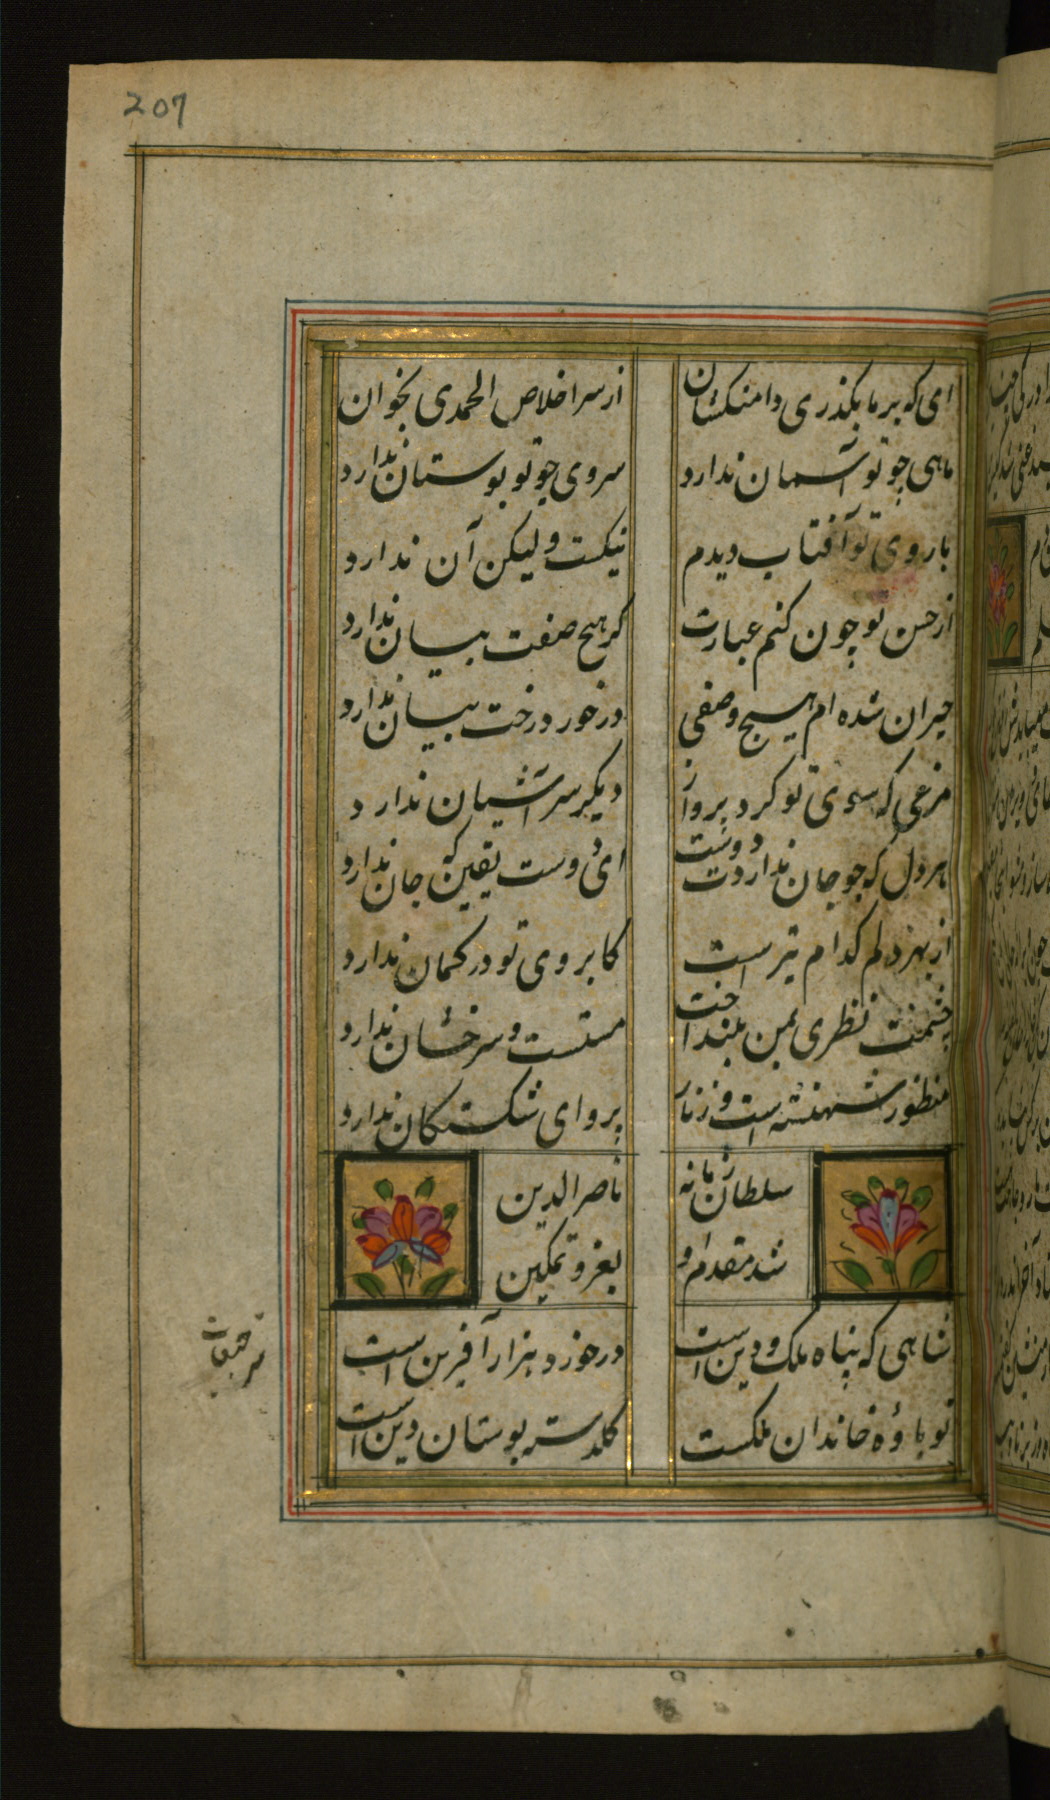 207
ای که بر ما بگذری دامنکشان
از سر اخلاص الحمدی بخوان
ماهی چو تو آسمان ندارد
سروی چو تو بوستان ندارد
با روی تو آفتاب دیدم
نیکست ولیکن آن ندارد
از حسن تو چون کنم عبارت
کز هیچ صفت بیان ندارد
حیران شده ام هیچ وصفی
در خور درخت بیان ندارد
مرغی که سوی تو کرد پرواز
دیکر سر آشیان ندارد
هر دل که چو جان نداردت دوست
ای دوست یقین که جان ندارد
از بهر دلم کدام تیر است
کابروی تو در کمان ندارد
چشمت نظری بمن بینداخت
مستست و سر خشان ندارد
منظور شهنشه است و زنار
پروای شکستکان ندارد
سلطان زمانه
ناصر الدین
شد مقدم او
بعز و تمکین
شاهی که پناه ملک و دین است
در خورد هزار آفرین است
نو باوهٔ خاندان ملکست
کلدسته بوستان دین است